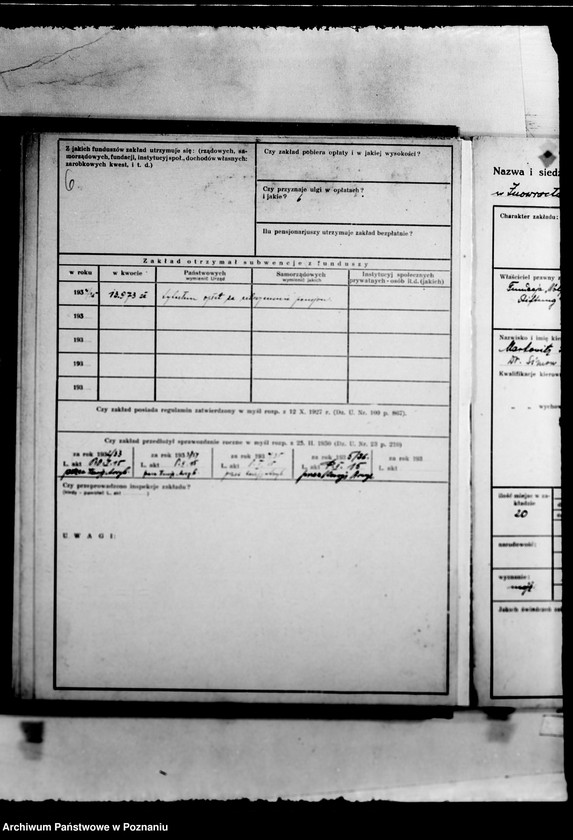 Z jakich funduszów zakład utrzymuje się: (rządowych, sa-
morządowych, fundacji, instytucyj społ., dochodów własnych:
zarobkowych kwest, i t. d.)
6
Czy zakład pobiera opłaty i w jakiej wysokości?
Czy przyznaje ulgi w opłatach?
i jakie? 6
Ilu pensjonarjuszy utrzymuje zakład bezpłatnie?
Zakład otrzymał subwencje z funduszy
w roku w kwocie Państwowych Samorządowych Instytucyj społecznych
wymienić Urząd wymienić jakich prywatnych - osób it.d. (jakich)
193 13.573 zł tytułem opłat za utrzymanie
193
193
193
193
Czy zakład posiada regulamin zatwierdzony w myśl rozp. z 12 X. 1927 r. (Dz. U. Nr. 100 p. 867).
Czy zakład przedłożył sprawozdanie roczne w myśl rozp. z 25. II. 1930 (Dz. U. Nr. 23 p. 220)
za rok 193 za rok 193 za rok 193 za rok 1935/36. za rok 193
L. akt L. akt L. akt L. akt L. akt
Czy przeprowadzono inspekcje zakładu?
(kiedy - powołać L. akt )
UWAGI:
Nazwa i sied
w Inowrocła
Charakter zakładu:
Właściciel prawny
Fundacja
Stiftung
Nazwisko i imię kie
Markowitz
Dr. Simon
Kwalifikacje kierow
„ „ wychow
Ilość miejsc w za-
kładzie
20
narodowość:
wyznanie:
mojż.
Jakich świadczeń
Archiwum Państwowe w Poznaniu